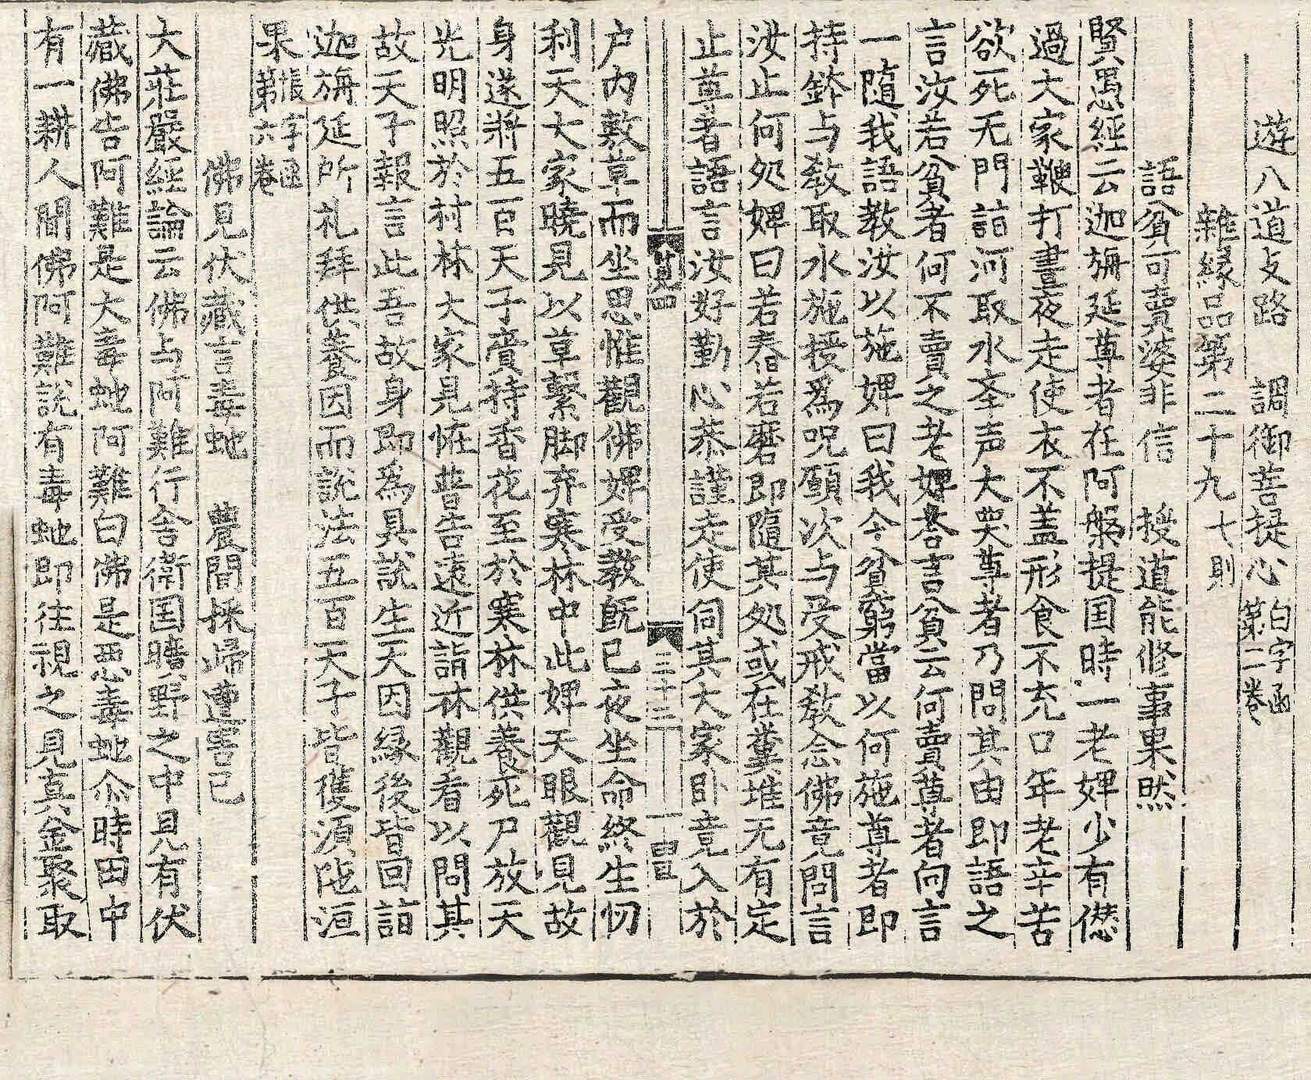 遊八道支路　調御菩提心 白字函第二卷
雜緣品第二十九 七則
語貧可賣婆非信　授道能修事果然
賢愚經云迦旃延尊者在阿槃提国時一老婢少有𠎝
過大家鞭打晝夜走使衣不盖形食不充口年老辛苦
欲死无門詣河取水𡌛声大哭尊者乃問其由即語之
言汝若貧者何不賣之老婢荅言貧云何賣尊者向言
一隨我語教汝以施婢曰我今貧窮當以何施尊者即
持鉢与敎取水施授爲呪願次与受戒敎念佛竟問言
汝止何処婢曰若舂若磨即隨其処或在糞堆无有定
止尊者語言汝好勤心恭謹走使伺其大家卧竟入於
賢四
三十二
户內敷草而坐思惟觀佛婢受教既已夜坐命終生忉
利天大家曉見以草繫脚弃寒林中此婢天眼觀見故
身遂將五百天子賫持香花至於寒林供養死尸放天
光明照於村林大家見恠普告遠近詣林觀看以問其
故天子報言此吾故身即爲具說生天因緣後皆回詣
迦旃延所礼拜供養因而說法五百天子皆獲須陁洹
果 悵字函第六卷
佛見伏藏言毒虵　農間採歸遭害已
大莊嚴經論云佛与阿難行舍衛国曠野之中見有伏
藏佛告阿難是大毒虵阿難白佛是惡毒虵尒時田中
有一耕人聞佛阿難說有毒虵即往視之見真金聚取